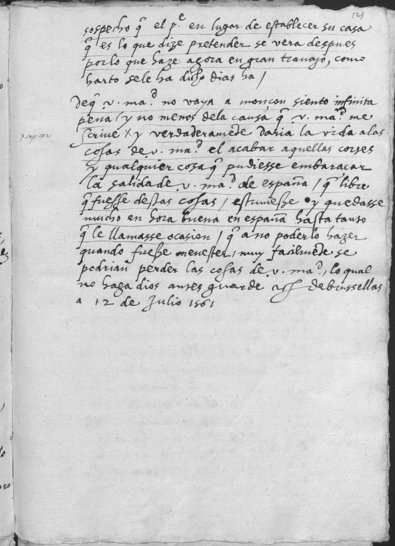 sospecho q̃ el p.e en lugar de establecer su casa
q̃ es lo que dize pretender se vera despues
por lo que haze agora en gran trauajo, como
harto se le ha dias ha /
De q̃ v. ma.d no vaya a monçon siento infinita
pena / y no menos de la causa q̃ v. ma.d me
scriue / y verdaderamẽte daria la vida a las
cosas de v. ma.d el acabar aquellas cortes
y qualquier cosa q̃ pudiesse embaraçar
la salida de v. ma.d de españa / q̃ libre
q̃ fuesse destas cosas / estuuiesse y quedasse
mucho en hora buena en españa hasta tanto
q̃ le llamasse ocasion / q̃ a no poderlo hazer
quando fuesse menester / muy facilmẽte se
podrian perder las cosas de v. ma.d / lo qual
no haga dios antes guarde de brussellas
a 12 de Julio 1561